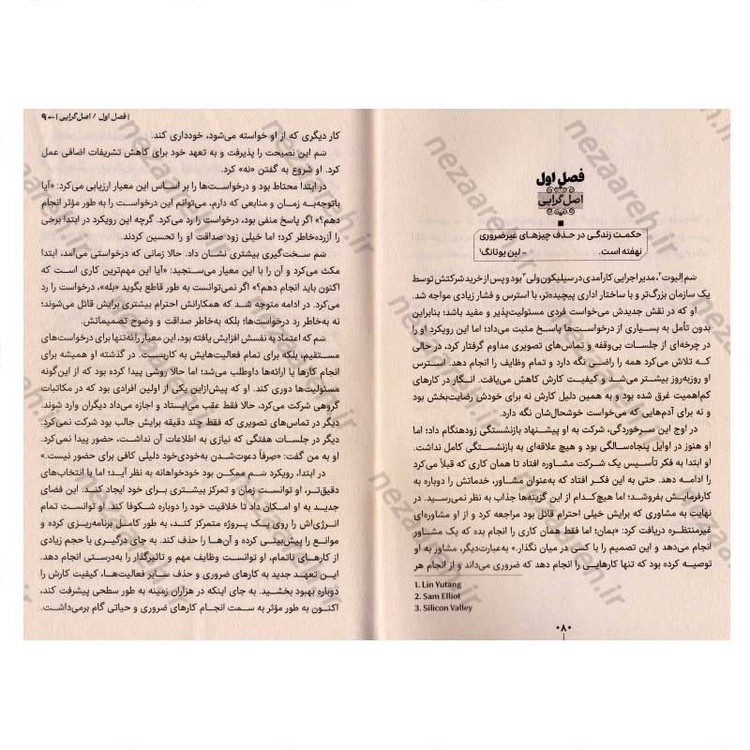 فصل اول
اصل‌گرایی
حکمت زندگی در حذف چیزهای غیرضروری
نهفته است.
- لین یوتانگ۱
سَم الیوت۲، مدیر اجرایی کارآمدی در سیلیکون ولی۳ بود و پس از خرید شرکتش توسط
یک سازمان بزرگ‌تر و با ساختار اداری پیچیده‌تر، با استرس و فشار زیادی مواجه شد.
او که در نقش جدیدش می‌خواست فردی مسئولیت‌پذیر و مفید باشد؛ بنابراین
بدون تأمل به بسیاری از درخواست‌ها پاسخ مثبت می‌داد؛ اما این رویکرد او را
در چرخه‌ای از جلسات بی‌وقفه و تماس‌های تصویری مداوم گرفتار کرد، در حالی
که تلاش می‌کرد همه را راضی نگه دارد و تمام وظایف را انجام دهد. استرس
او روزبه‌روز بیشتر می‌شد و کیفیت کارش کاهش می‌یافت. انگار در کارهای
کم‌اهمیت غرق شده بود و به همین دلیل کارش نه برای خودش رضایت‌بخش بود
و نه برای آدم‌هایی که می‌خواست خوشحال‌شان نگه دارد.
در اوج این سرخوردگی، شرکت به او پیشنهاد بازنشستگی زودهنگام داد؛ اما
او هنوز در اوایل پنجاه‌سالگی بود و هیچ علاقه‌ای به بازنشستگی کامل نداشت.
او ابتدا به فکر تأسیس یک شرکت مشاوره افتاد تا همان کاری که قبلاً می‌کرد
را ادامه دهد. حتی به این فکر افتاد که به‌عنوان مشاور، خدماتش را دوباره به
کارفرمایش بفروشد؛ اما هیچ‌کدام از این گزینه‌ها جذاب به نظر نمی‌رسید. در
نهایت به مشاوری که برایش خیلی احترام قائل بود مراجعه کرد و از او مشاوره‌ای
غیرمنتظره دریافت کرد: «بمان؛ اما فقط همان کاری را انجام بده که یک مشاور
انجام می‌دهد و این تصمیم را با کسی در میان نگذار.» به‌عبارت‌دیگر، مشاور به او
توصیه کرده بود که تنها کارهایی را انجام دهد که ضروری می‌داند و از انجام هر
1. Lin Yutang
2. Sam Elliot
3. Silicon Valley
۰۸۰
| فصل اول / اصل‌گرایی | ۹
کار دیگری که از او خواسته می‌شود، خودداری کند.
سَم این نصیحت را پذیرفت و به تعهد خود برای کاهش تشریفات اضافی عمل
کرد. او شروع به گفتن «نه» کرد.
در ابتدا محتاط بود و درخواست‌ها را بر اساس این معیار ارزیابی می‌کرد: «آیا
باتوجه‌به زمان و منابعی که دارم، می‌توانم این درخواست را به طور مؤثر انجام
دهم؟» اگر پاسخ منفی بود، درخواست را رد می‌کرد. گرچه این رویکرد در ابتدا برخی
را آزرده‌خاطر کرد؛ اما خیلی زود صداقت او را تحسین کردند.
سَم سخت‌گیری بیشتری نشان داد. حالا زمانی که درخواستی می‌آمد، ابتدا
مکث می‌کرد و آن را با این معیار می‌سنجید: «آیا این مهم‌ترین کاری است که
اکنون باید انجام دهم؟» اگر نمی‌توانست به طور قاطع بگوید «بله»، درخواست را
رد می‌کرد. در ادامه متوجه شد که همکارانش احترام بیشتری برایش قائل می‌شوند؛
نه به‌خاطر رد درخواست‌ها؛ بلکه به‌خاطر صداقت و وضوح تصمیماتش.
سَم که اعتماد به نفسش افزایش یافته بود، این معیار را نه‌تنها برای درخواست‌های
مستقیم، بلکه برای تمام فعالیت‌هایش به کاربست. در گذشته او همیشه برای
انجام کارها یا ارائه‌ها داوطلب می‌شد؛ اما حالا روشی پیدا کرده بود که از این‌گونه
مسئولیت‌ها دوری کند. او که پیش‌ازاین یکی از اولین افرادی بود که در مکاتبات
گروهی شرکت می‌کرد، حالا فقط عقب می‌ایستاد و اجازه می‌داد دیگران وارد شوند.
دیگر در تماس‌های تصویری که فقط چند دقیقه برایش جالب بود شرکت نمی‌کرد.
دیگر در جلسات هفتگی که نیازی به اطلاعات آن نداشت، حضور پیدا نمی‌کرد.
او به من گفت: «صرفاً دعوت‌شدن به‌خودی‌خود دلیلی کافی برای حضور نیست.»
در ابتدا، رویکرد سَم ممکن بود خودخواهانه به نظر آید؛ اما با انتخاب‌های
دقیق‌تر، او توانست زمان و تمرکز بیشتری برای خود ایجاد کند. این فضای
جدید به او امکان داد تا خلاقیت خود را دوباره شکوفا کند. او توانست تمام
انرژی‌اش را روی یک پروژه متمرکز کند، به طور کامل برنامه‌ریزی کرده و
موانع را پیش‌بینی کرده و آن‌ها را حذف کند. به جای درگیری با حجم زیادی
از کارهای ناتمام، او توانست وظایف مهم و تاثیرگذار را به‌درستی انجام دهد.
این تعهد جدید به کارهای ضروری و حذف سایر فعالیت‌ها، کیفیت کارش را
دوباره بهبود بخشید. به جای اینکه در هزاران زمینه به طور سطحی پیشرفت کند،
اکنون به طور مؤثر به سمت انجام کارهای ضروری و حیاتی گام برمی‌داشت.
nezaareh.ir